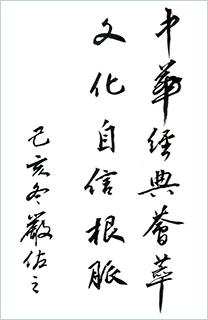 中華經典薈萃
文化自信根脈
己亥冬嚴佐之